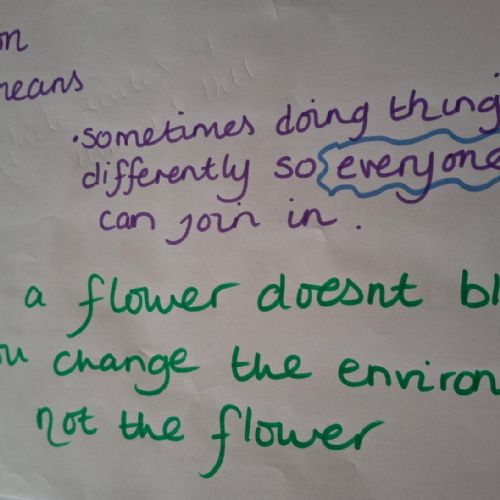 on
means
• sometimes doing thing
differently so everyone
can join in.
a flower doesnt bl
ou change the environ
not the flower